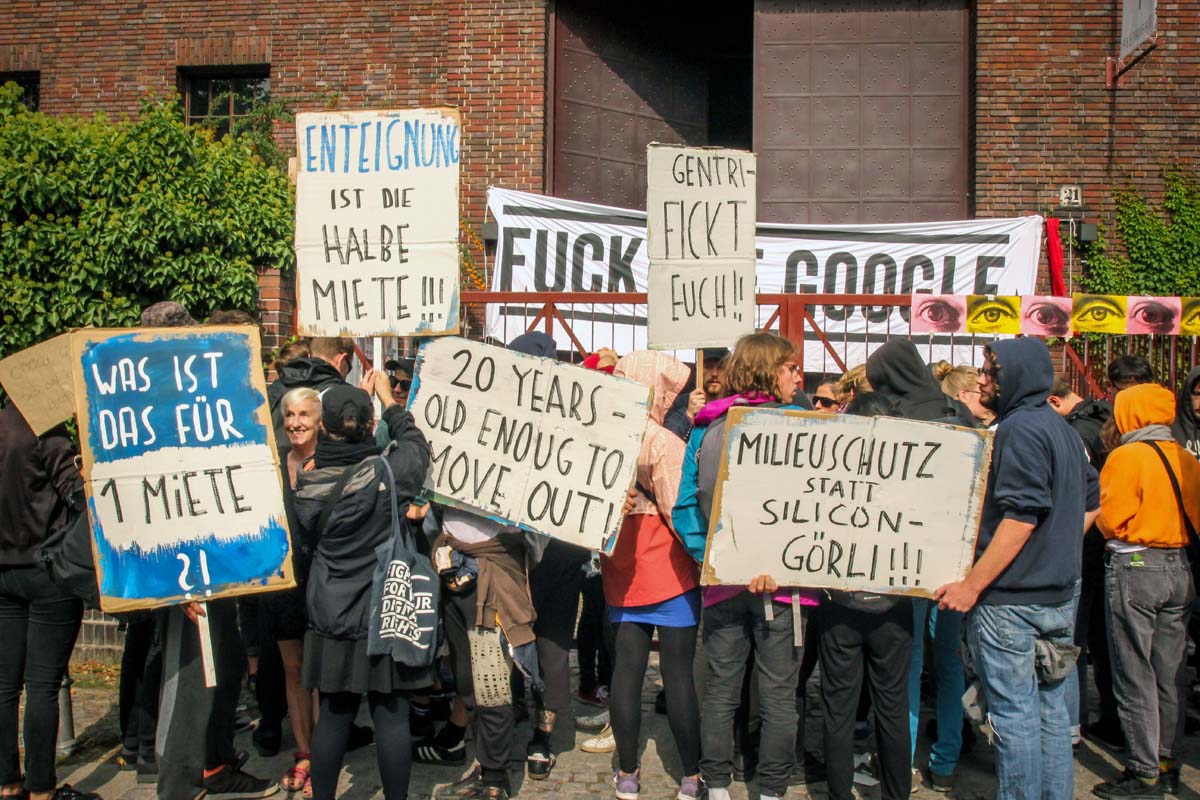 ENTEIGNUNG
IST DIE
HALBE
MIETE !!!
GENTRI-
FICKT
EUCH!!
FUCK
GOOGLE
21
WAS IST
DAS FÜR
1 MiETE
?!
20 YEARS-
OLD ENOUG TO
MOVE OUT!
MILIEUSCHUTZ
STATT
SILICON-
GÖRLI!!!
FIGHT FOR
YOUR
DIGITAL
RIGHTS